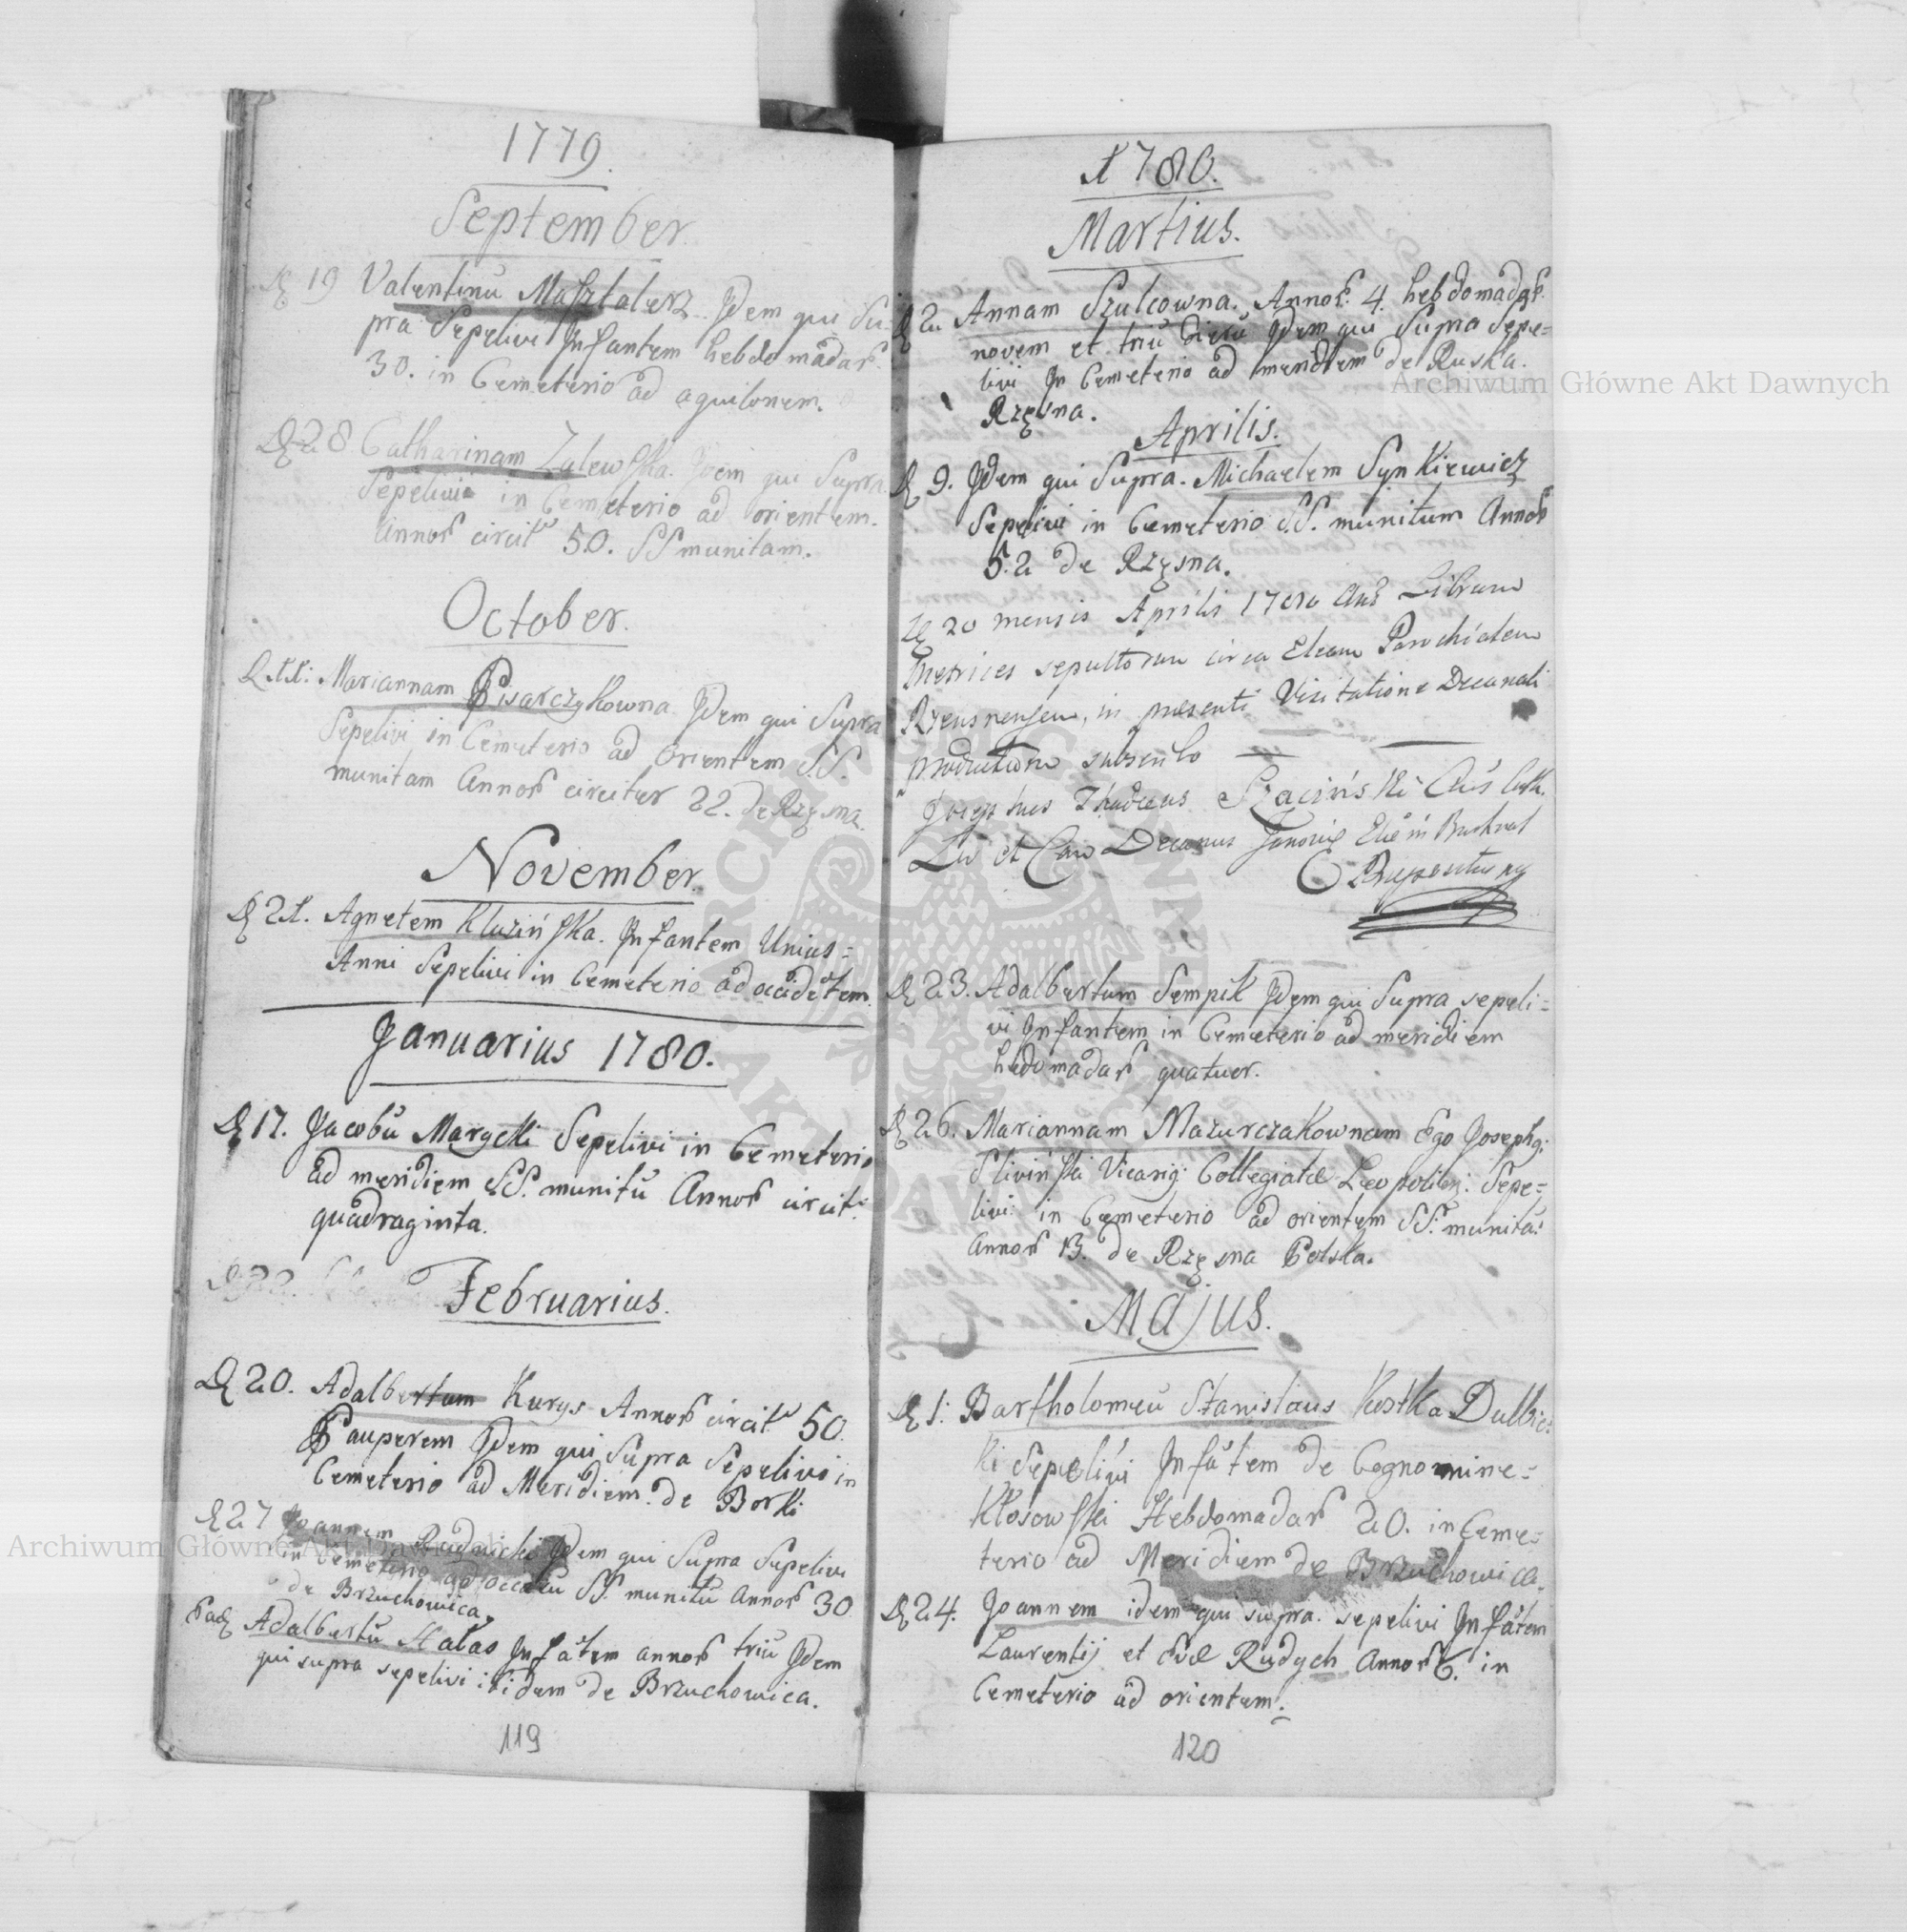 1779.
September
D 19 Valentinũ Masztalerz Idem qui Su-
pra Sepelivi Infantem hebdomadar
30. in Cemeterio ad aquilonem.
D 28 Catharinam Zalewska. Idem qui Supra
Sepelivi in Cemeterio ad orientem.
Annor circit 50. SS munitam.
October.
D Mariannam Pisarczykowna Idem qui Supra
Sepelivi in Cemeterio ad Orientem SS.
munitam Annor circiter 22. de Rzęsna
November.
D 21. Agnetem Kluzińska. Infantem Unius=
Anni Sepelivi in Cemeterio ad occidẽtem.
Januarius 1780.
D 17. Jacobũ Marycki Sepelivi in Cemeterio
ad meridiem SS. munitũ Annor circit:
quadraginta.
D 22.
Februarius.
D 20. Adalbertum Kurys Annor circit 50.
Pauperem Idem qui Supra Sepelivi in
Cemeterio ad Meridiem. de Borki
D 27 Joannem Rudnicki Idem qui Supra Sepelivi
in Cemeterio ad occasũ SS. munitũ Annor 30
de Brzuchowica.
Ead Adalbertũ Hałas Infãtem annor triũ Idem
qui supra sepelivi ibidem de Brzuchowica.
119
1780.
Martius.
D 2. Annam Szulcowna. Annor. 4. hebdomadar.
novem et triũ Idem qui Supra Sepe=
livi In Cemeterio ad meridiem de Ruska.
Rzęsna.
Aprilis.
D 9. Idem qui Supra. Michaelem Synkiewicz
Sepelivi in Cemeterio SS. munitum Annor
52 de Rzęsna.
D 20 mensis Aprilis 1780 Librum
Metrices sepultorum circa Parochialem
Rzensnensem, in praesenti Visitatione Decanali
productum subscribo
Josephus Thadeus
Decanus
D 23. Adalbertum Sempik Idem qui Supra sepeli=
vi Infantem in Cemeterio ad meridiem
hebdomadar quatuor.
D 26. Mariannam Mazurczakownam Ego Joseph9:
Sliviński Vicari9: Collegiatæ Leopolien: Sepe=
livi: in Cemeterio ad orientem SS: munitã:
Annor 13. de Rzęsna Polska.
Majus.
D 1: Bartholomeũ Stanislaus Kostka Dulbic=
ki Sepelivi Infãtem de Cognomine=
Kłosowski Hebdomadar 20. in Ceme=
terio ad Meridiem de Brzuchowica.
D 24. Joannem idem qui supra. sepelivi Infãtem
Laurentij et Evæ Rudych Annor 6. in
Cemeterio ad orientem.
120
Archiwum Główne Akt Dawnych
Archiwum Główne Akt Dawnych